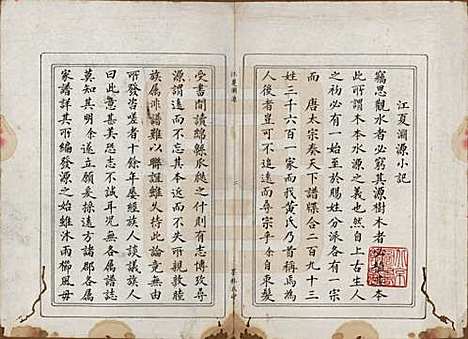 江夏淵源小記
竊思觀水者必窮其源樹木者必培其本
此所謂木本水源之義也然自上古生人
之初必有一姓始於賜姓分派各有一宗
而　唐太宗奏天下譜牒合二百九十三
姓三千六百一家而我黃氏乃首稱焉為
人後者豈可不追遠而尊宗乎余自束髮
江夏淵源
受書間讀緜緜瓜瓞之什則有志博攷尋
源謂遠而不忘其本近而不失所親敦睦
族屬非譜難以聯誼雖矢持此論竟無由
所發當嗟者十餘年屢經族人談議族人
與此意甚美恐志不誠耳况無各屬譜誌
莫知其明余遂慨然躬採遠方諸郡各屬
家譜詳其所編發源之始維沐雨櫛風毋